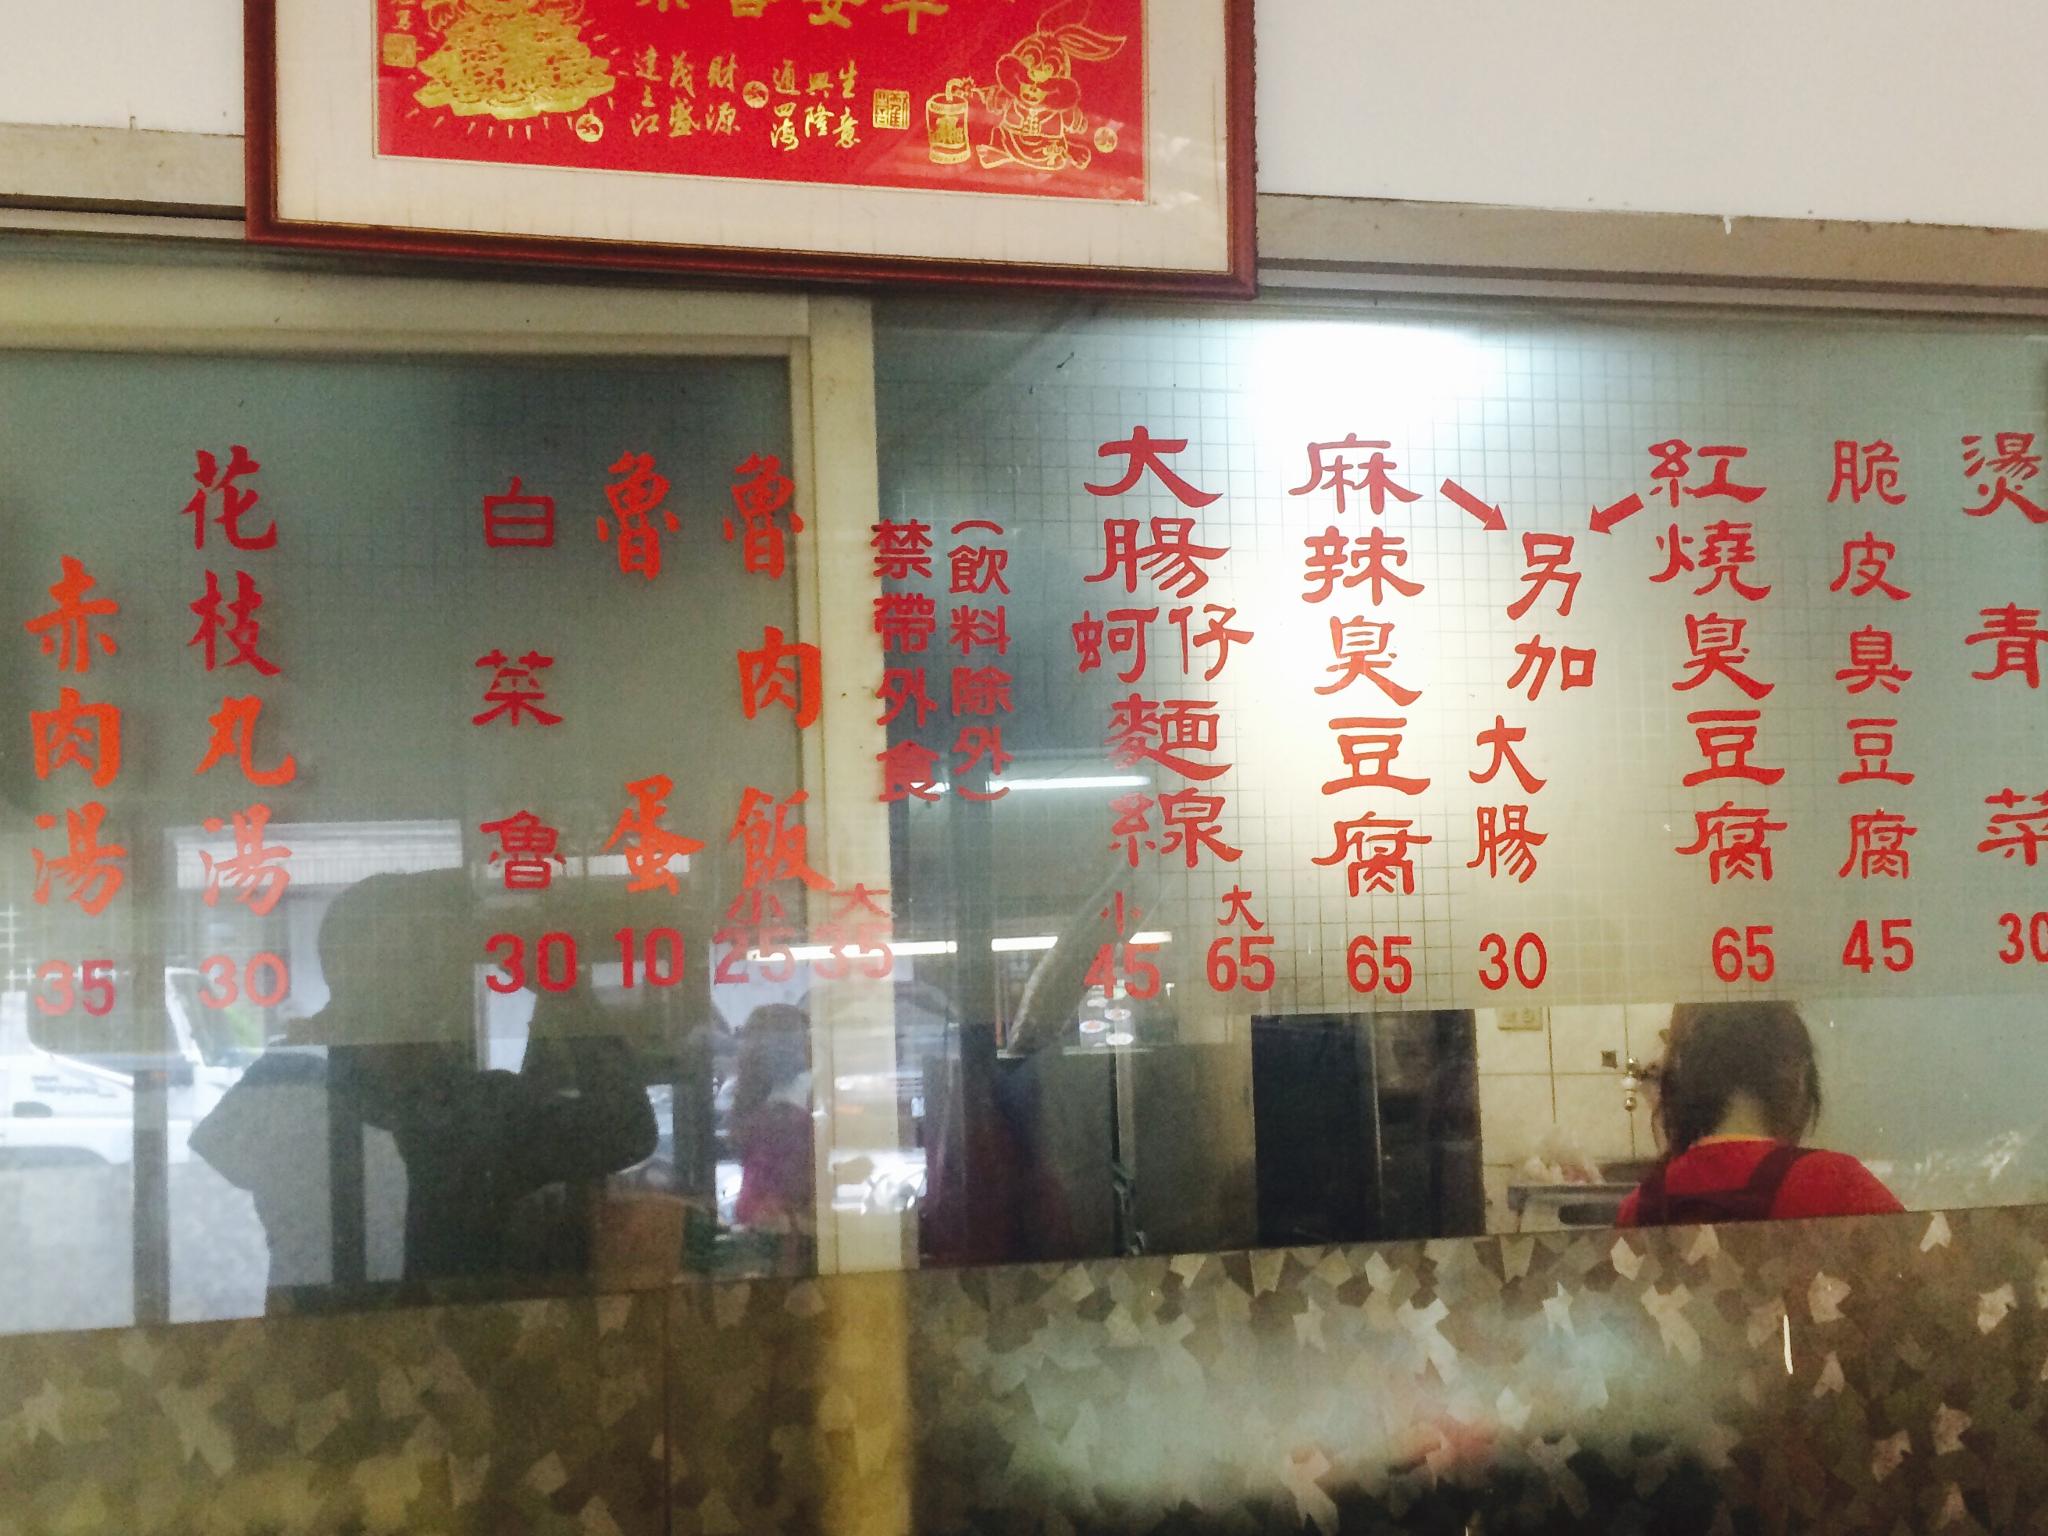 平安
財源
茂盛
達三江
生意
興隆
通四海
燙青菜 30
脆皮臭豆腐 45
紅燒臭豆腐 65
另加大腸 30
麻辣臭豆腐 65
大腸蚵仔麵線 小45 大65
(飲料除外)
禁帶外食
魯肉飯 小25 大35
魯蛋 10
白菜魯 30
花枝丸湯 30
赤肉湯 35